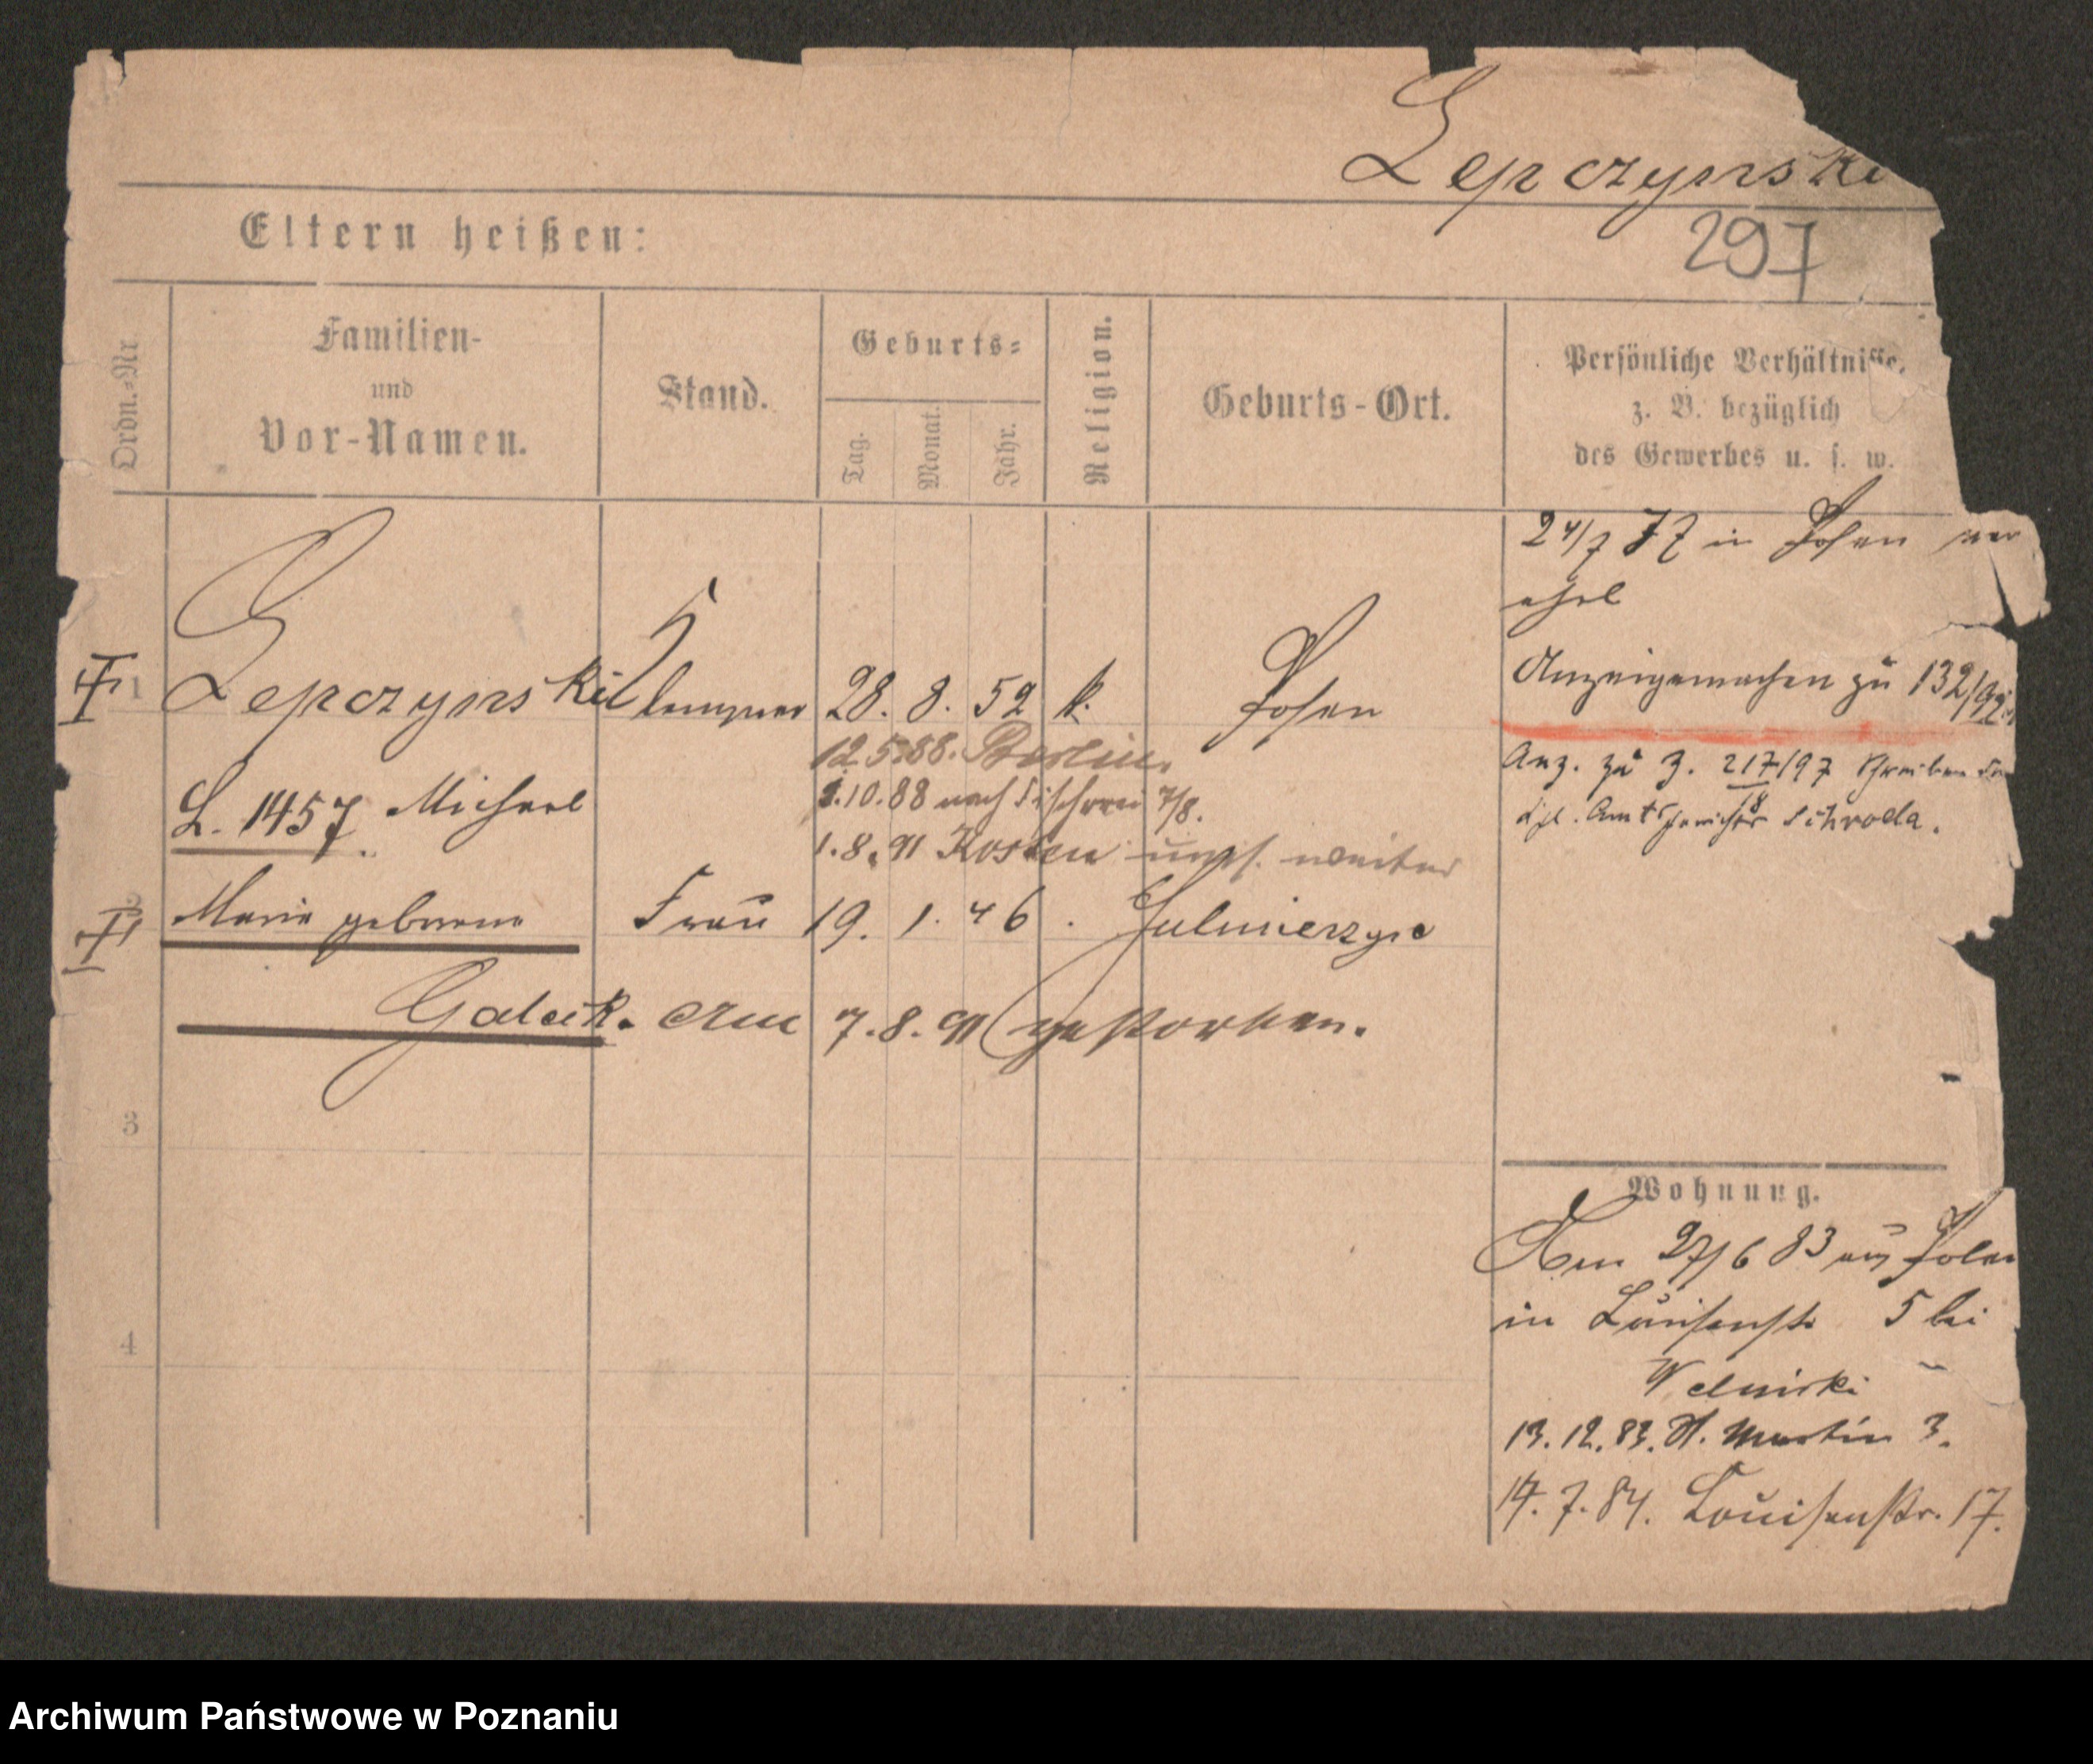 Lepczynski
297
Eltern heißen:
Ordn.-Nr.
Familien-
und
Vor-Namen.
Stand.
Geburts-
Tag.
Monat.
Jahr.
Religion.
Geburts-Ort.
Persönliche Verhältnisse,
z. B. bezüglich
des Gewerbes u. s. w.
24/7 77 in Posen ver
ehel
1 Lepczynski Klempner 28. 8. 52 k. Posen
Anzeigemachen zu 132/92
12.5.88. Berlin.
L. 1457. Michael
1.10.88 nach Fischerei 7/8.
Anz. zu Z. 217/97 Schreiben
Amtsgericht Schroda.
1.8.91 Kosten weiter
2 Marie geborene Frau 19. 1. 46. Sulmierzyce
Galeck. Am 7.8.91 gestorben.
3
4
Wohnung.
Am 27/6 83 aus Polen
in Luisenstr 5 bei
Welnicki
13.12.83. St. Martin 3.
14.7.84. Louisenstr. 17.
Archiwum Państwowe w Poznaniu